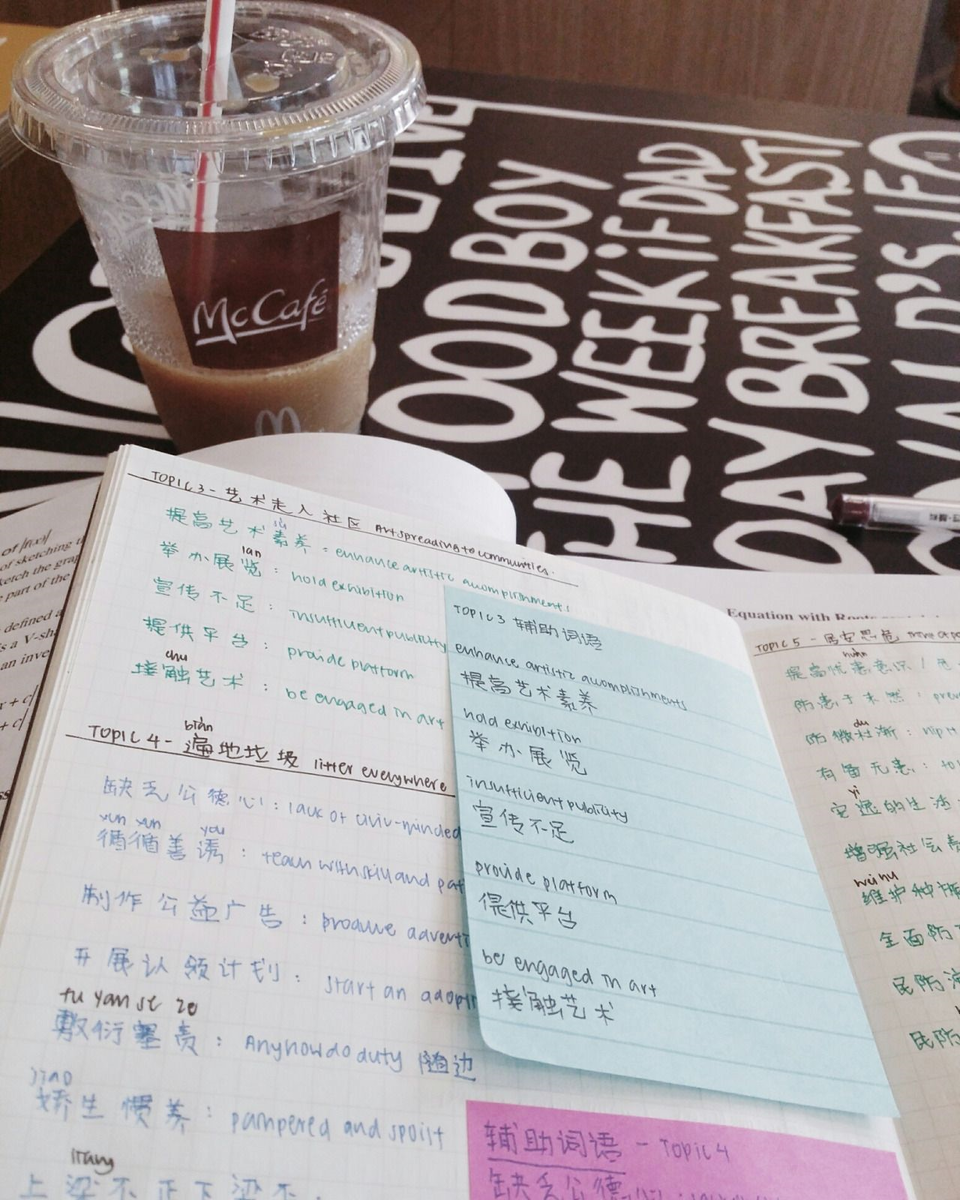 McCafé
OOD BOY
THE WEEK iF DAD
DAY BREAKFAST
ALD'S. IF
TOPIC 3 - 艺术走入社区 Art spreading to communities.
提高艺术素养 : enhance artistic accomplishments
lan
举办展览 : hold exhibition
宣传不足 : insufficient publicity
提供平台 : provide platform
chu
接触艺术 : be engaged in art
biàn
TOPIC 4 - 遍地垃圾 litter everywhere
缺乏公德心 : lack of civic-minded
xun xun you
循循善诱 : teach with skill and pat
制作公益广告 : produce advert
开展认领计划 : start an adopt
fu yan se ze
敷衍塞责 : Anyhow do duty 随边
jiao
娇生惯养 : pampered and spoilt
liang
上梁不正下梁不
TOPIC 3 辅助词语
enhance artistic accomplishments
提高艺术素养
hold exhibition
举办展览
insufficient publicity
宣传不足
provide platform
提供平台
be engaged in art
接触艺术
辅助词语 - TOPIC 4
缺乏公德心
Equation with Roots
TOPIC 5 - 居安思危
huàn
防患于未然
du
防微杜渐
有备无患
yi
安逸的生活
增强社会责
wéi hù
维护种族
全面防
民防演
民防
of |f(x)|
of sketching
sketch the grap
part of the
defined a
is a V-sha
an inve